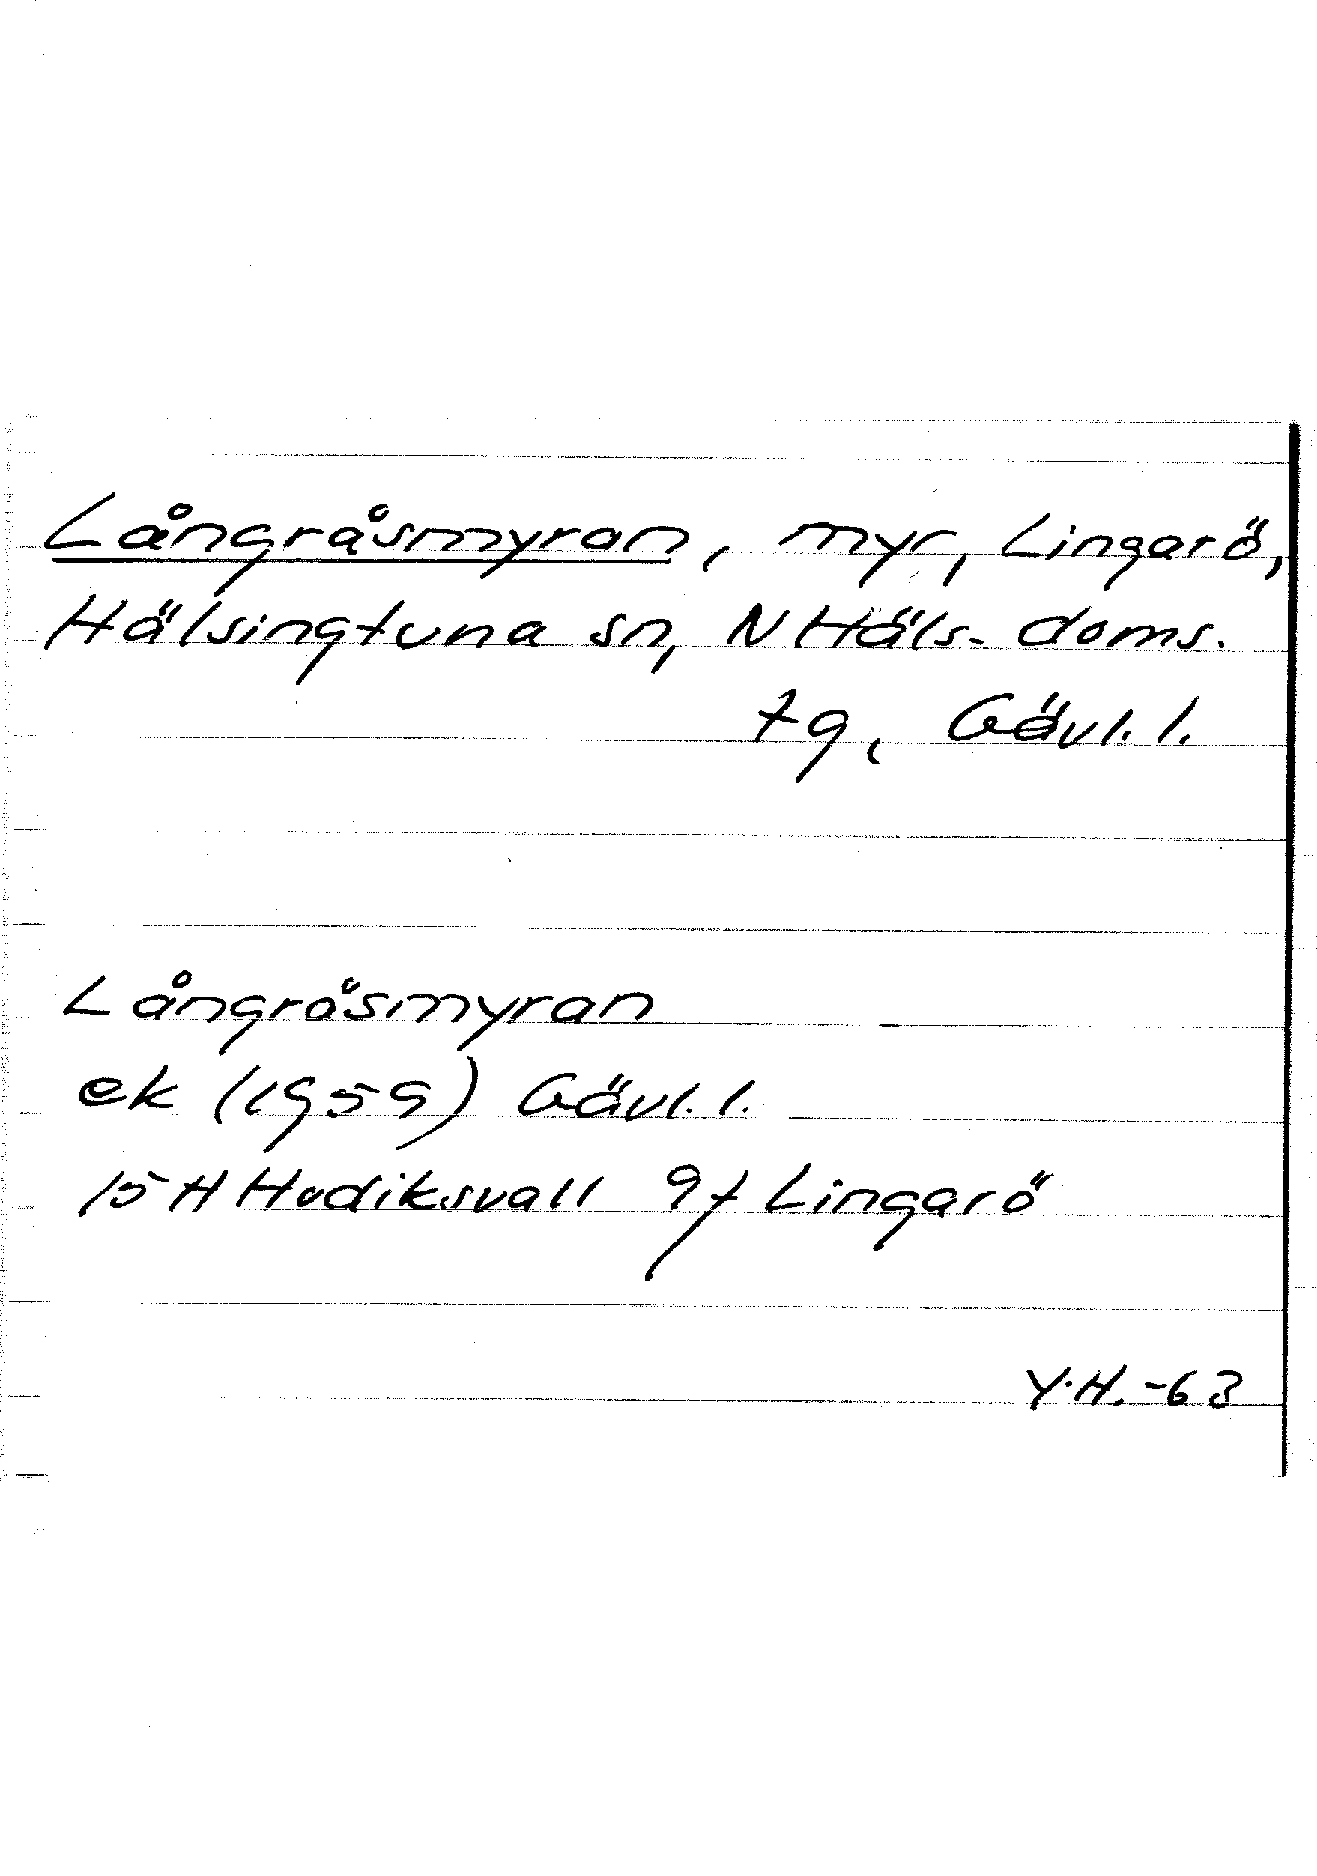 Långråsmyran, myr, Lingarö,
Hälsingtuna sn, N Häls. doms.
tg, Gävl. l.
Långråsmyran
ek (1959) Gävl. l.
15 H Hudiksvall 9f Lingarö
Y.H. -63